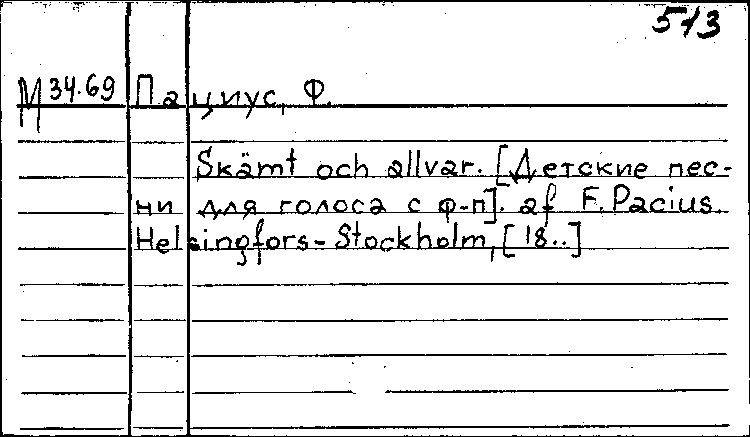 513
М 34.69 Пациус, Ф.
Skämt och allvar. [Детские пес-
ни для голоса с ф-п]. af F. Pacius.
Helsingfors - Stockholm, [18..]